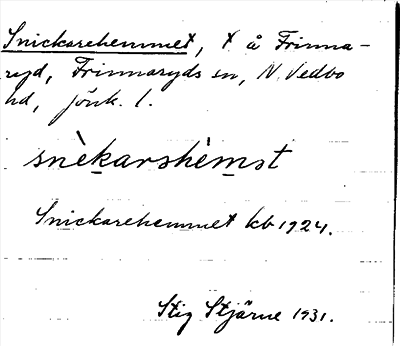 Snickarehemmet, t å Frinna-
ryd, Frinnaryds sn, N. Vedbo
hd, Jönk. l.
snèkarshèmst
Snickarehemmet kb 1924.
Stig Stjärne 1931.